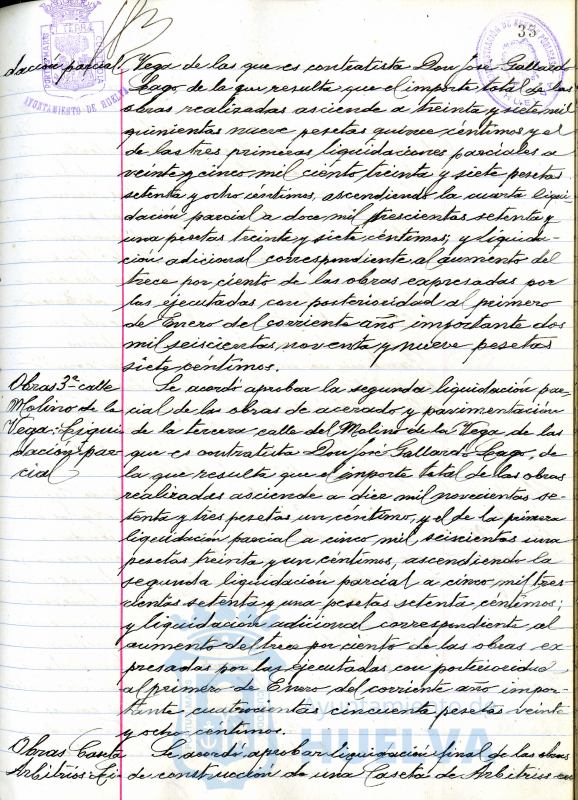 33
AYUNTAMIENTO DE HUELVA
dación parcial
Vega de las que es contratista Don José Gallardo
Lago, de la que resulta que el importe total de las
obras realizadas asciende a treinta y siete mil
quinientas nueve pesetas quince céntimos y el
de las tres primeras liquidaciones parciales a
veinte y cinco mil ciento treinta y siete pesetas
setenta y ocho céntimos, ascendiendo la cuarta liqui-
dación parcial a doce mil trescientas setenta y
una pesetas treinta y siete céntimos; y liquida-
ción adicional correspondiente al aumento del
trece por ciento de las obras expresadas por
las ejecutadas con posterioridad al primero
de Enero del corriente año, importante dos
mil seiscientas noventa y nueve pesetas
siete céntimos.
Obras 3ª calle
Molino de la
Vega: Liqui
dación par-
cial
Se acordó aprobar la segunda liquidación par-
cial de las obras de acerado y pavimentación
de la tercera calle del Molino de la Vega de las
que es contratista Don José Gallardo Lago, de
la que resulta que el importe total de las obras
realizadas asciende a dice mil novecientas se-
tenta y tres pesetas un céntimo, y el de la primera
liquidación parcial a cinco mil seiscientas una
pesetas treinta y un céntimos, ascendiendo la
segunda liquidación parcial a cinco mil tres-
cientas setenta y una pesetas setenta céntimos;
y liquidación adicional correspondiente al
aumento del trece por ciento de las obras ex-
presadas por las ejecutadas con posterioridad
al primero de Enero del corriente año, impor-
tante cuatrocientas cincuenta pesetas veinte
y ocho céntimos.
Obras Caseta
Arbitrios: Li-
Se acordó aprobar liquidación final de las obras
de construcción de una Caseta de Arbitrios en
Ayuntamiento de
HUELVA